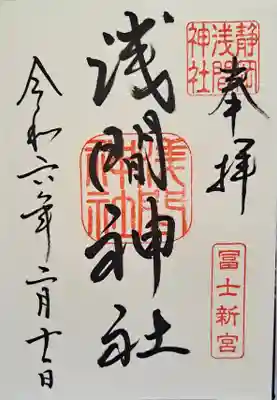 奉拝
静岡
浅間
神社
冨士新宮
浅間神社
令和六年二月十二日